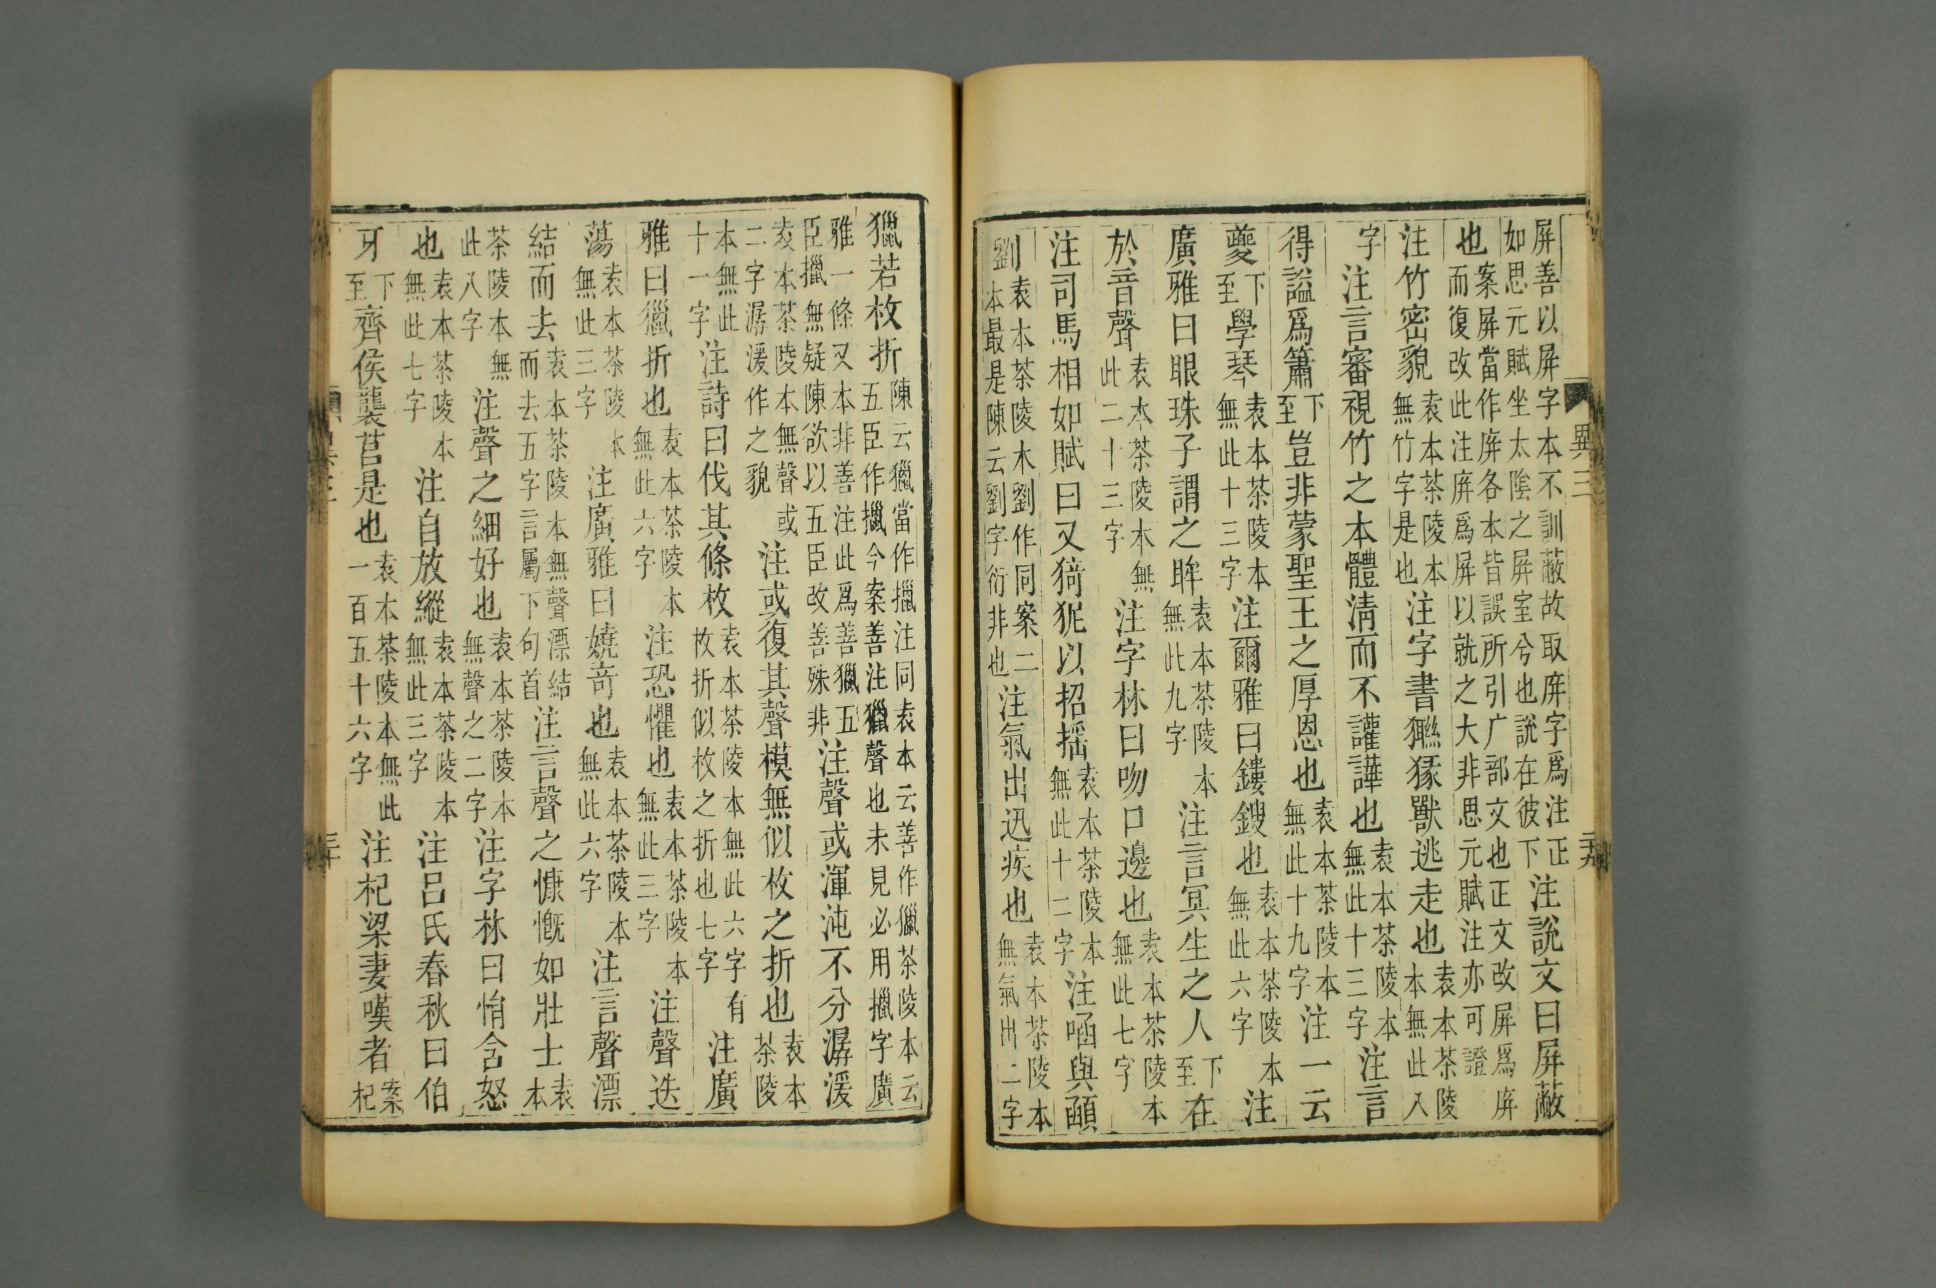 屏善以屏字本不訓蔽故取屛字爲注正
如思元賦坐太陰之屏室兮也說在彼下注說文曰屏蔽
也案屏當作屛各本皆誤所引广部文也正文改屏爲屛
而復改此注屛爲屏以就之大非思元賦注亦可證
注竹密貌袁本茶陵本無竹字是也注字書獮猭獸逃走也袁本茶陵本無此八
字注言審視竹之本體清而不讙譁也袁本茶陵本無此十三字注言
得謚爲簫下至豈非蒙聖王之厚恩也袁本茶陵本無此十九字注一云
夔下至學琴袁本茶陵本無此十三字注爾雅曰鏤鎪也袁本茶陵本無此六字注
廣雅曰眼珠子謂之眸袁本茶陵本無此九字注言冥生之人下至在
於音聲袁本茶陵本無此二十三字注字林曰吻口邊也袁本茶陵本無此七字
注司馬相如賦曰又猗狔以招揺袁本茶陵本無此十二字注㖤與顄
劉袁本茶陵本劉作同案二本最是陳云劉字衍非也注氣出迅疾也袁本茶陵本無氣出二字
獵若枚折陳云獵當作擸注同袁本云善作獵茶陵本云五臣作擸今案善注獵聲也未見必用擸字廣
雅一條又本非善注此爲善獵五臣擸無疑陳欲以五臣改善殊非注聲或渾沌不分潺湲
袁本茶陵本無聲或二字潺湲作之貌注或復其聲模無似枚之折也袁本茶陵
本無此十一字注詩曰伐其條枚袁本茶陵本無此六字有枚折似枚之折也七字注廣
雅曰獵折也袁本茶陵本無此六字注恐懼也袁本茶陵本無此三字注聲迭
蕩袁本茶陵本無此三字注廣雅曰嬈奇也袁本茶陵本無此六字注言聲漂
結而去袁本茶陵本無聲漂結而去五字言屬下句首注言聲之慷慨如壯士袁本
茶陵本無此八字注聲之細好也袁本茶陵本無聲之二字注字林曰悁含怒
也袁本茶陵本無此七字注自放縱袁本茶陵本無此三字注呂氏春秋曰伯
牙下至齊侯襲莒是也袁本茶陵本無此一百五十六字注杞梁妻嘆者案杞
異三
二十九